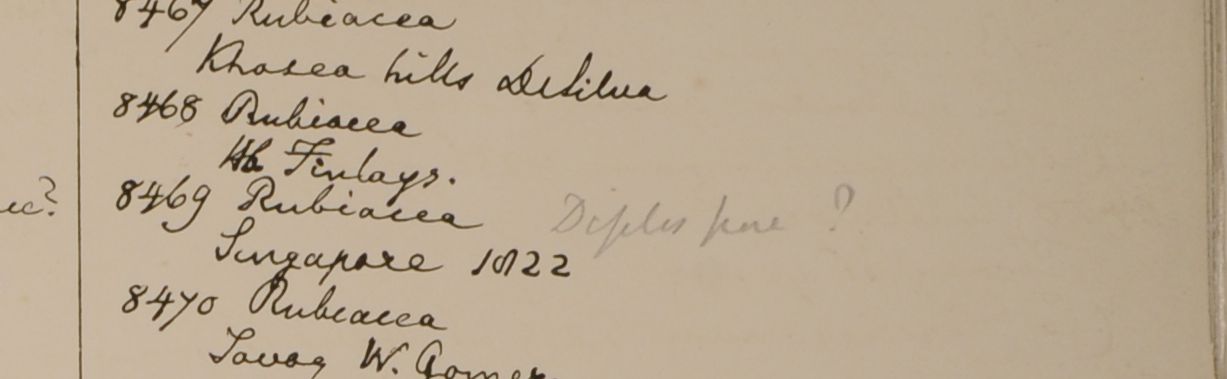 8467 Rubiacea
Khasea hills DeSilva
8468 Rubiacea
Hb Finlays.
8469 Rubiacea Diplospora ?
Singapore 1822
8470 Rubiacea
Tavoy W. Gomez